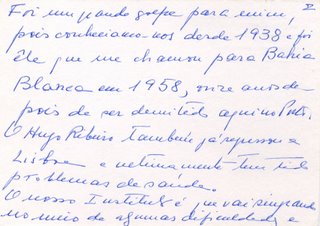 V
Foi um grande golpe para mim,
pois conhecíamo-nos desde 1938 e foi
êle que me chamou para Bahia
Blanca em 1958, onze anos de-
pois de ser demitido aqui no Porto.
O Hugo Ribeiro também já regressou a
Lisboa e ultimamente tem tido
problemas de saúde.
O nosso Instituto é que vai singrando
no meio de algumas dificuldades e